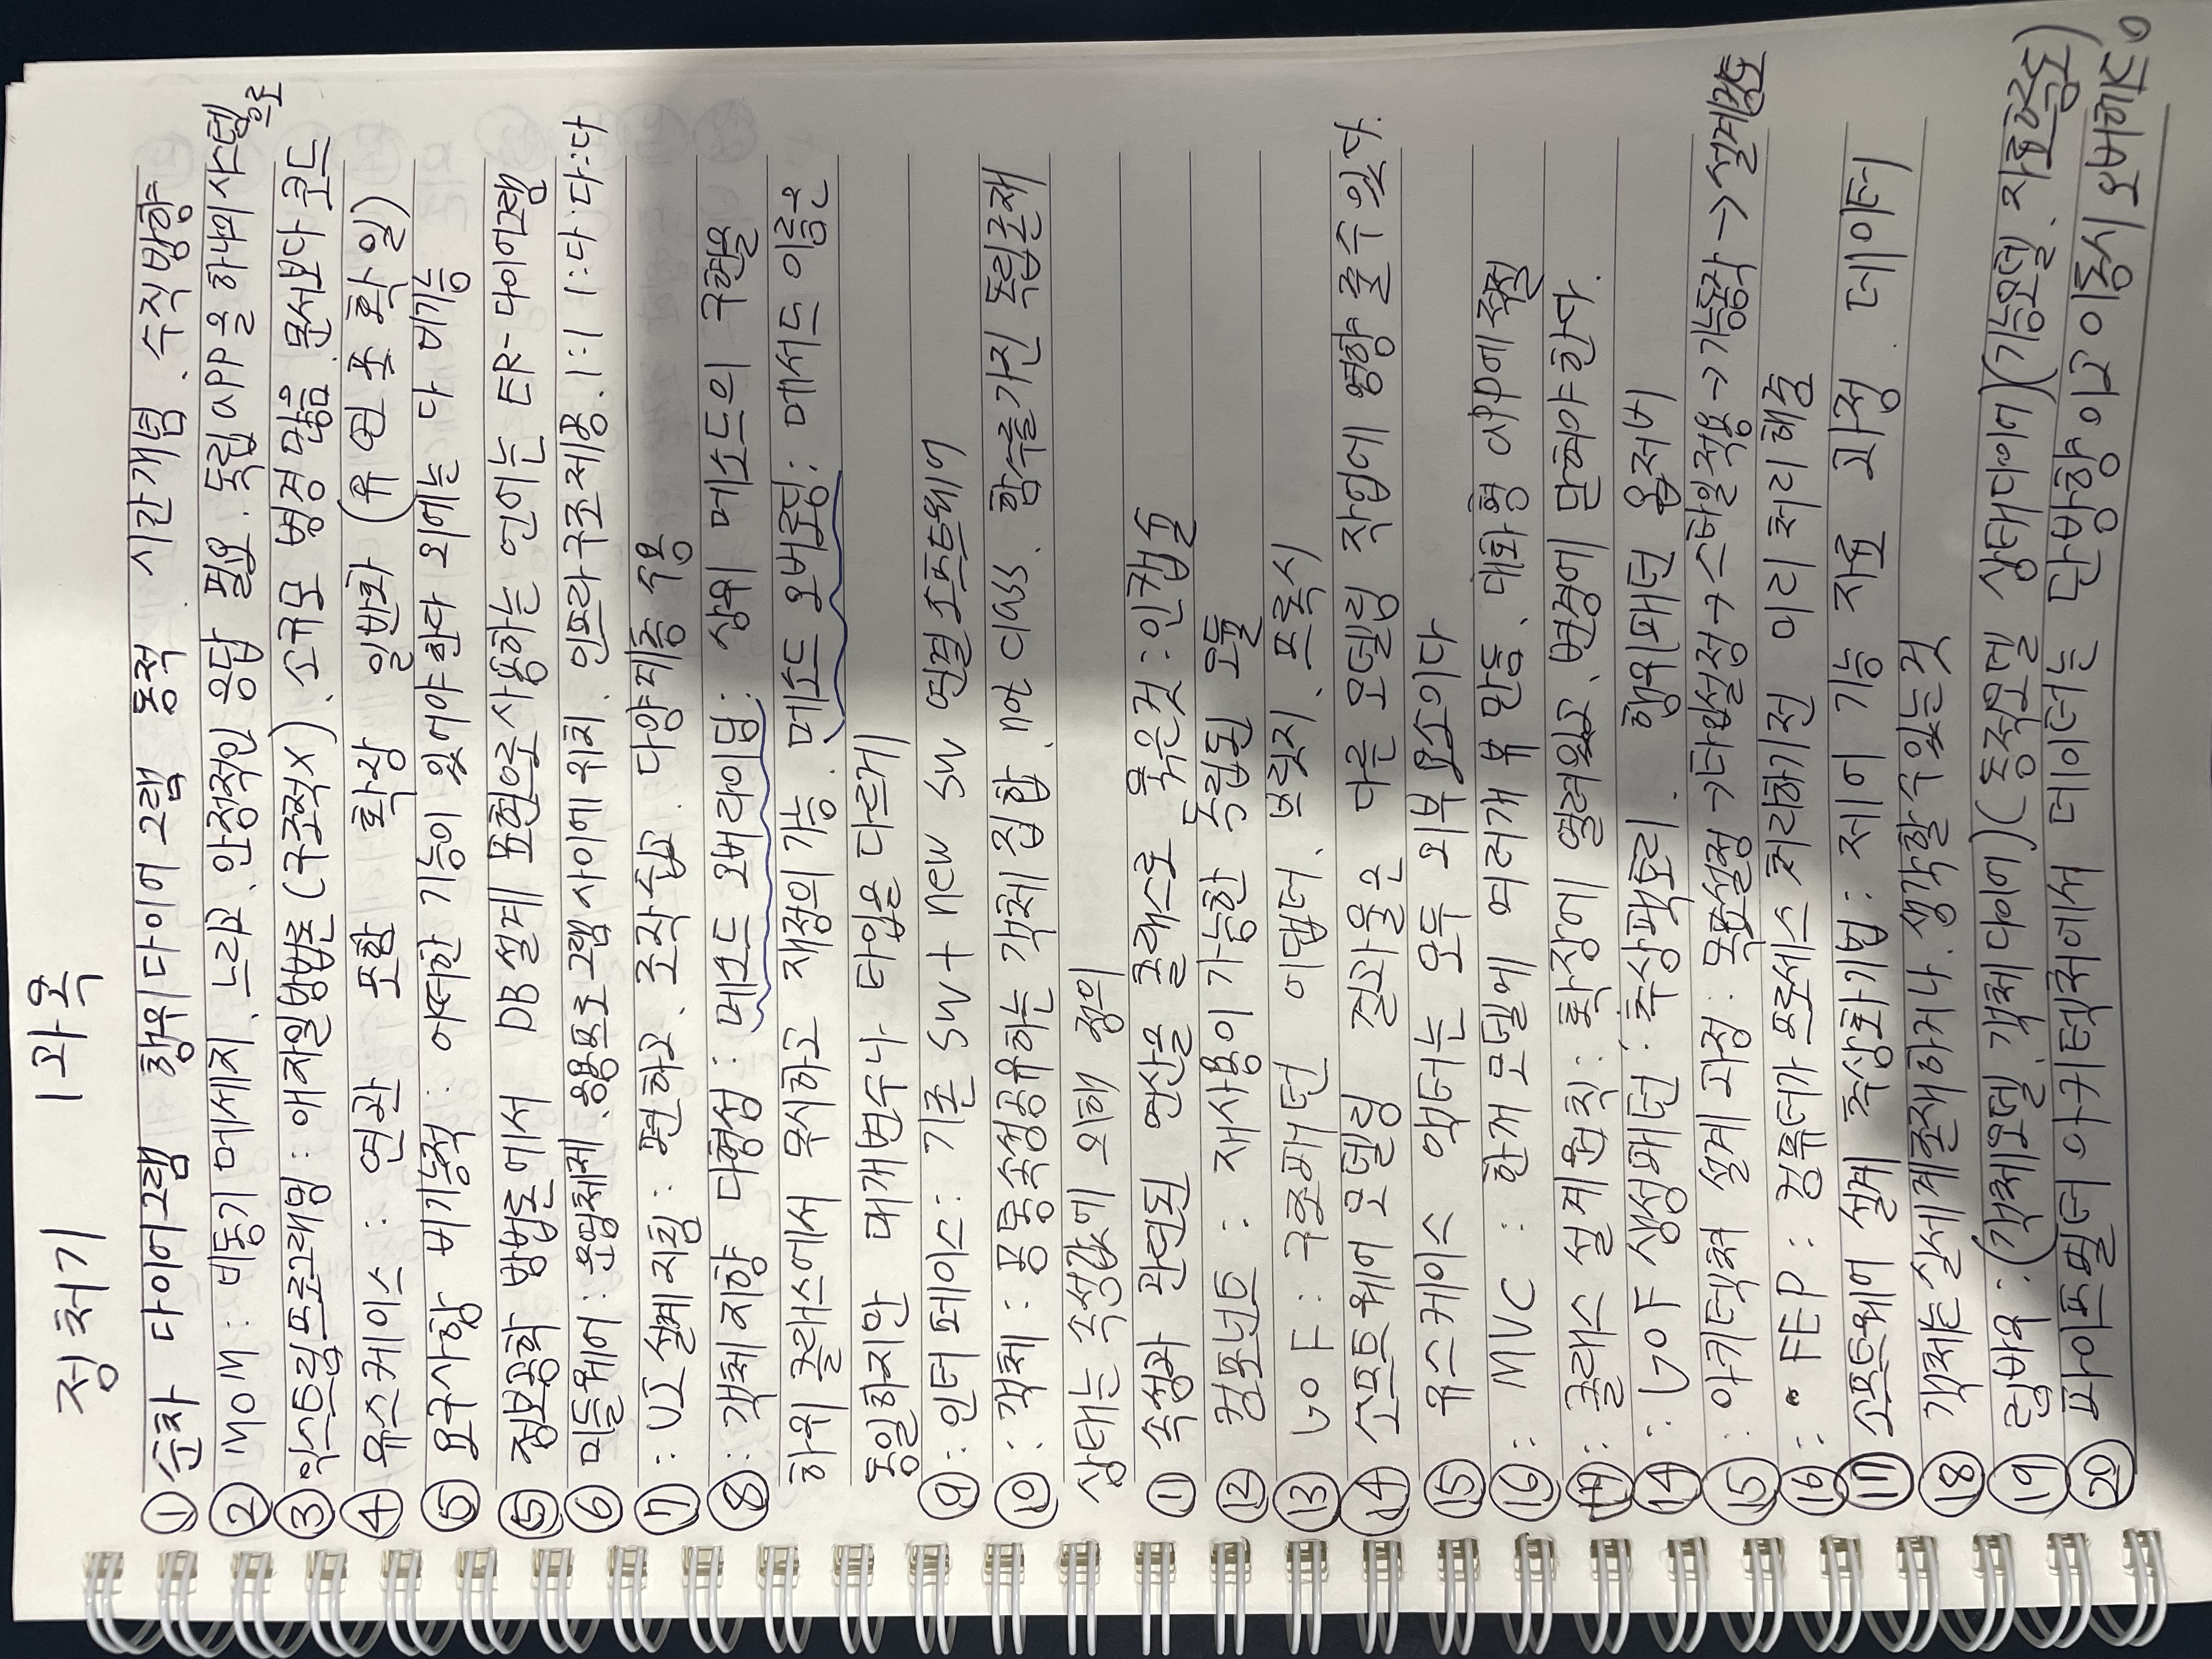 정처기 1과목
① 순차 다이어그램 행위다이어그램 동적 시간개념. 수직방향
② MOM : 비동기 메세지. 느리고. 안정적인 응답 필요. 독립 APP을 하나의 시스템으로
③ 익스트림프로그래밍 : 애자일방법론 (구조적X). 소규모 변경많음. 문서보다 코드
④ 유스케이스 : 연관 포함 확장 일반화 (유연포확일)
⑤ 요구사항 비기능적 : 어떠한 기능이 있어야한다 외에는 다 비기능
⑤ 정보공학 방법론에서 DB설계 표현으로 사용하는 언어는 ER-다이어그램
⑥ 미들웨어 : 운영체제. 응용프로그램 사이에 위치. 인프라구조제공. 1:1 1:다 다:다
⑦ : UI 설계 지침 : 편하고. 조작 쉽고. 다양계층 수용
⑧ : 객체 지향 다형성 : 메소드 오버라이딩 : 상위 메소드의 구현을
하위 클래스에서 무시하고 재정의 가능. 메소드 오버로딩 : 메서드 이름은
동일하지만 매개변수나 타입은 다르게
⑨ : 인터페이스 : 기존 SW + new SW 연결 소프트웨어
⑩ : 객체 : 공통속성공유하는 객체 집합. class. 함수를가진 독립존재
상태는 속성값에 의해 정의
⑪ 속성과 관련된 연산을 클래스로 묶은것 : 인캡슐
⑫ 컴포넌트 : 재사용이 가능한 독립된 모듈
⑬ GOF : 구조패턴 어댑터. 브릿지. 프록시
⑭ 소프트웨어 모델링 결과물은 다른 모델링 작업에 영향 줄 수 있다.
⑮ 유스케이스 액터는 모두 외부요소이다
⑯ : MVC : 한개 모델에 여러개 뷰 만듬. 대화형 APP에 적절
⑰ : 클래스 설계원칙 : 확장에 열려있고. 변경에 닫혀야한다.
⑭ : GOF 생성패턴 : 추상팩토리. 행위패턴 옵저버
⑮ : 아키텍처 설계 과정 : 목표설정 → 스타일적용 → 기능동작 → 설계검토
⑯ : FEP : 컴퓨터가 프로세스 처리하기전 미리 처리해줌
⑰ 소프트웨어 설계 추상화기법 : 제어 기능 자료 과정 데이터
⑱ 객체는 실세계존재하거나. 생각할수있는것
⑲ 럼바우 : (객체모델. 객체다이어)(동적모델 상태다이어)(기능모델. 자료흐름)
⑳ 파이프필터 아키텍처에서 데이터는 단방향 이고 이동시 오버헤드○